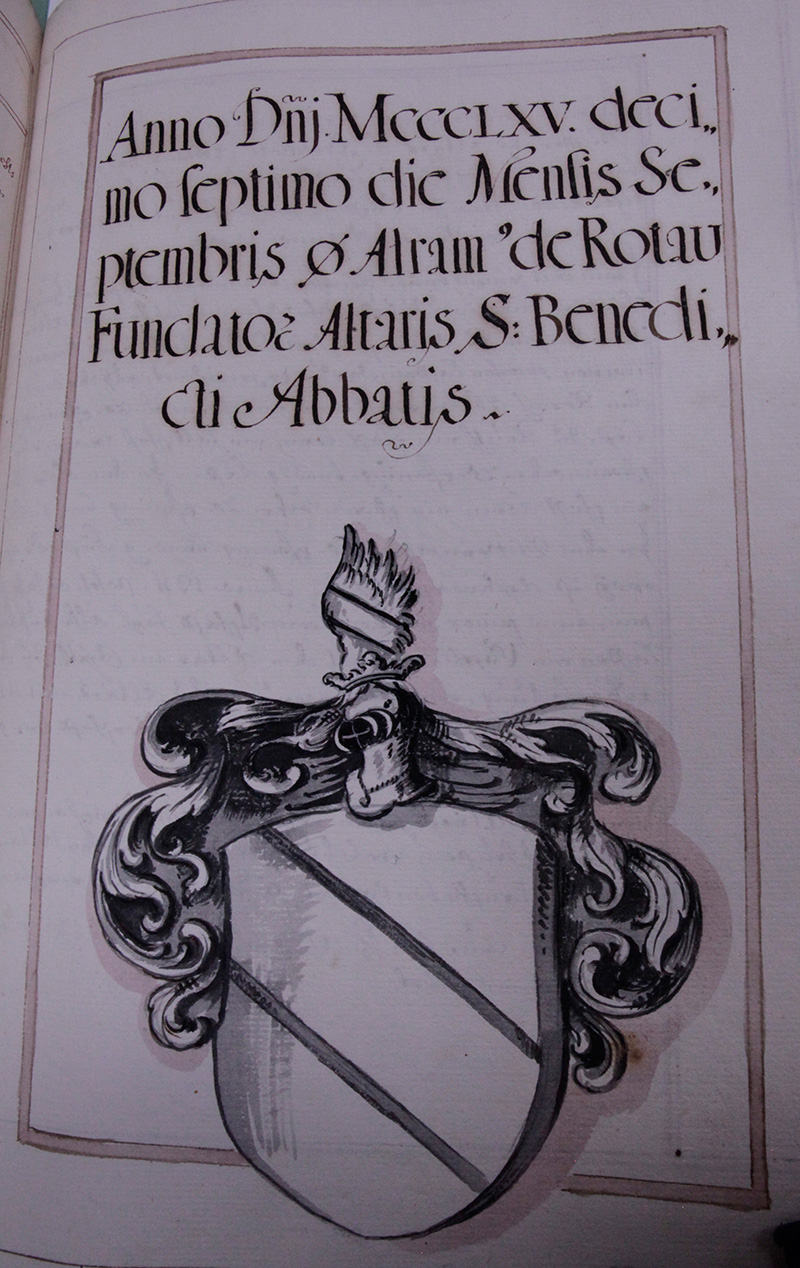 Anno Dñj. MCCCLXV. deci„
mo ſeptimo die Menſis Se„
ptembris Ø Alram ’de Rotau
Fundator Altaris S: Benedi„
cti Abbatis